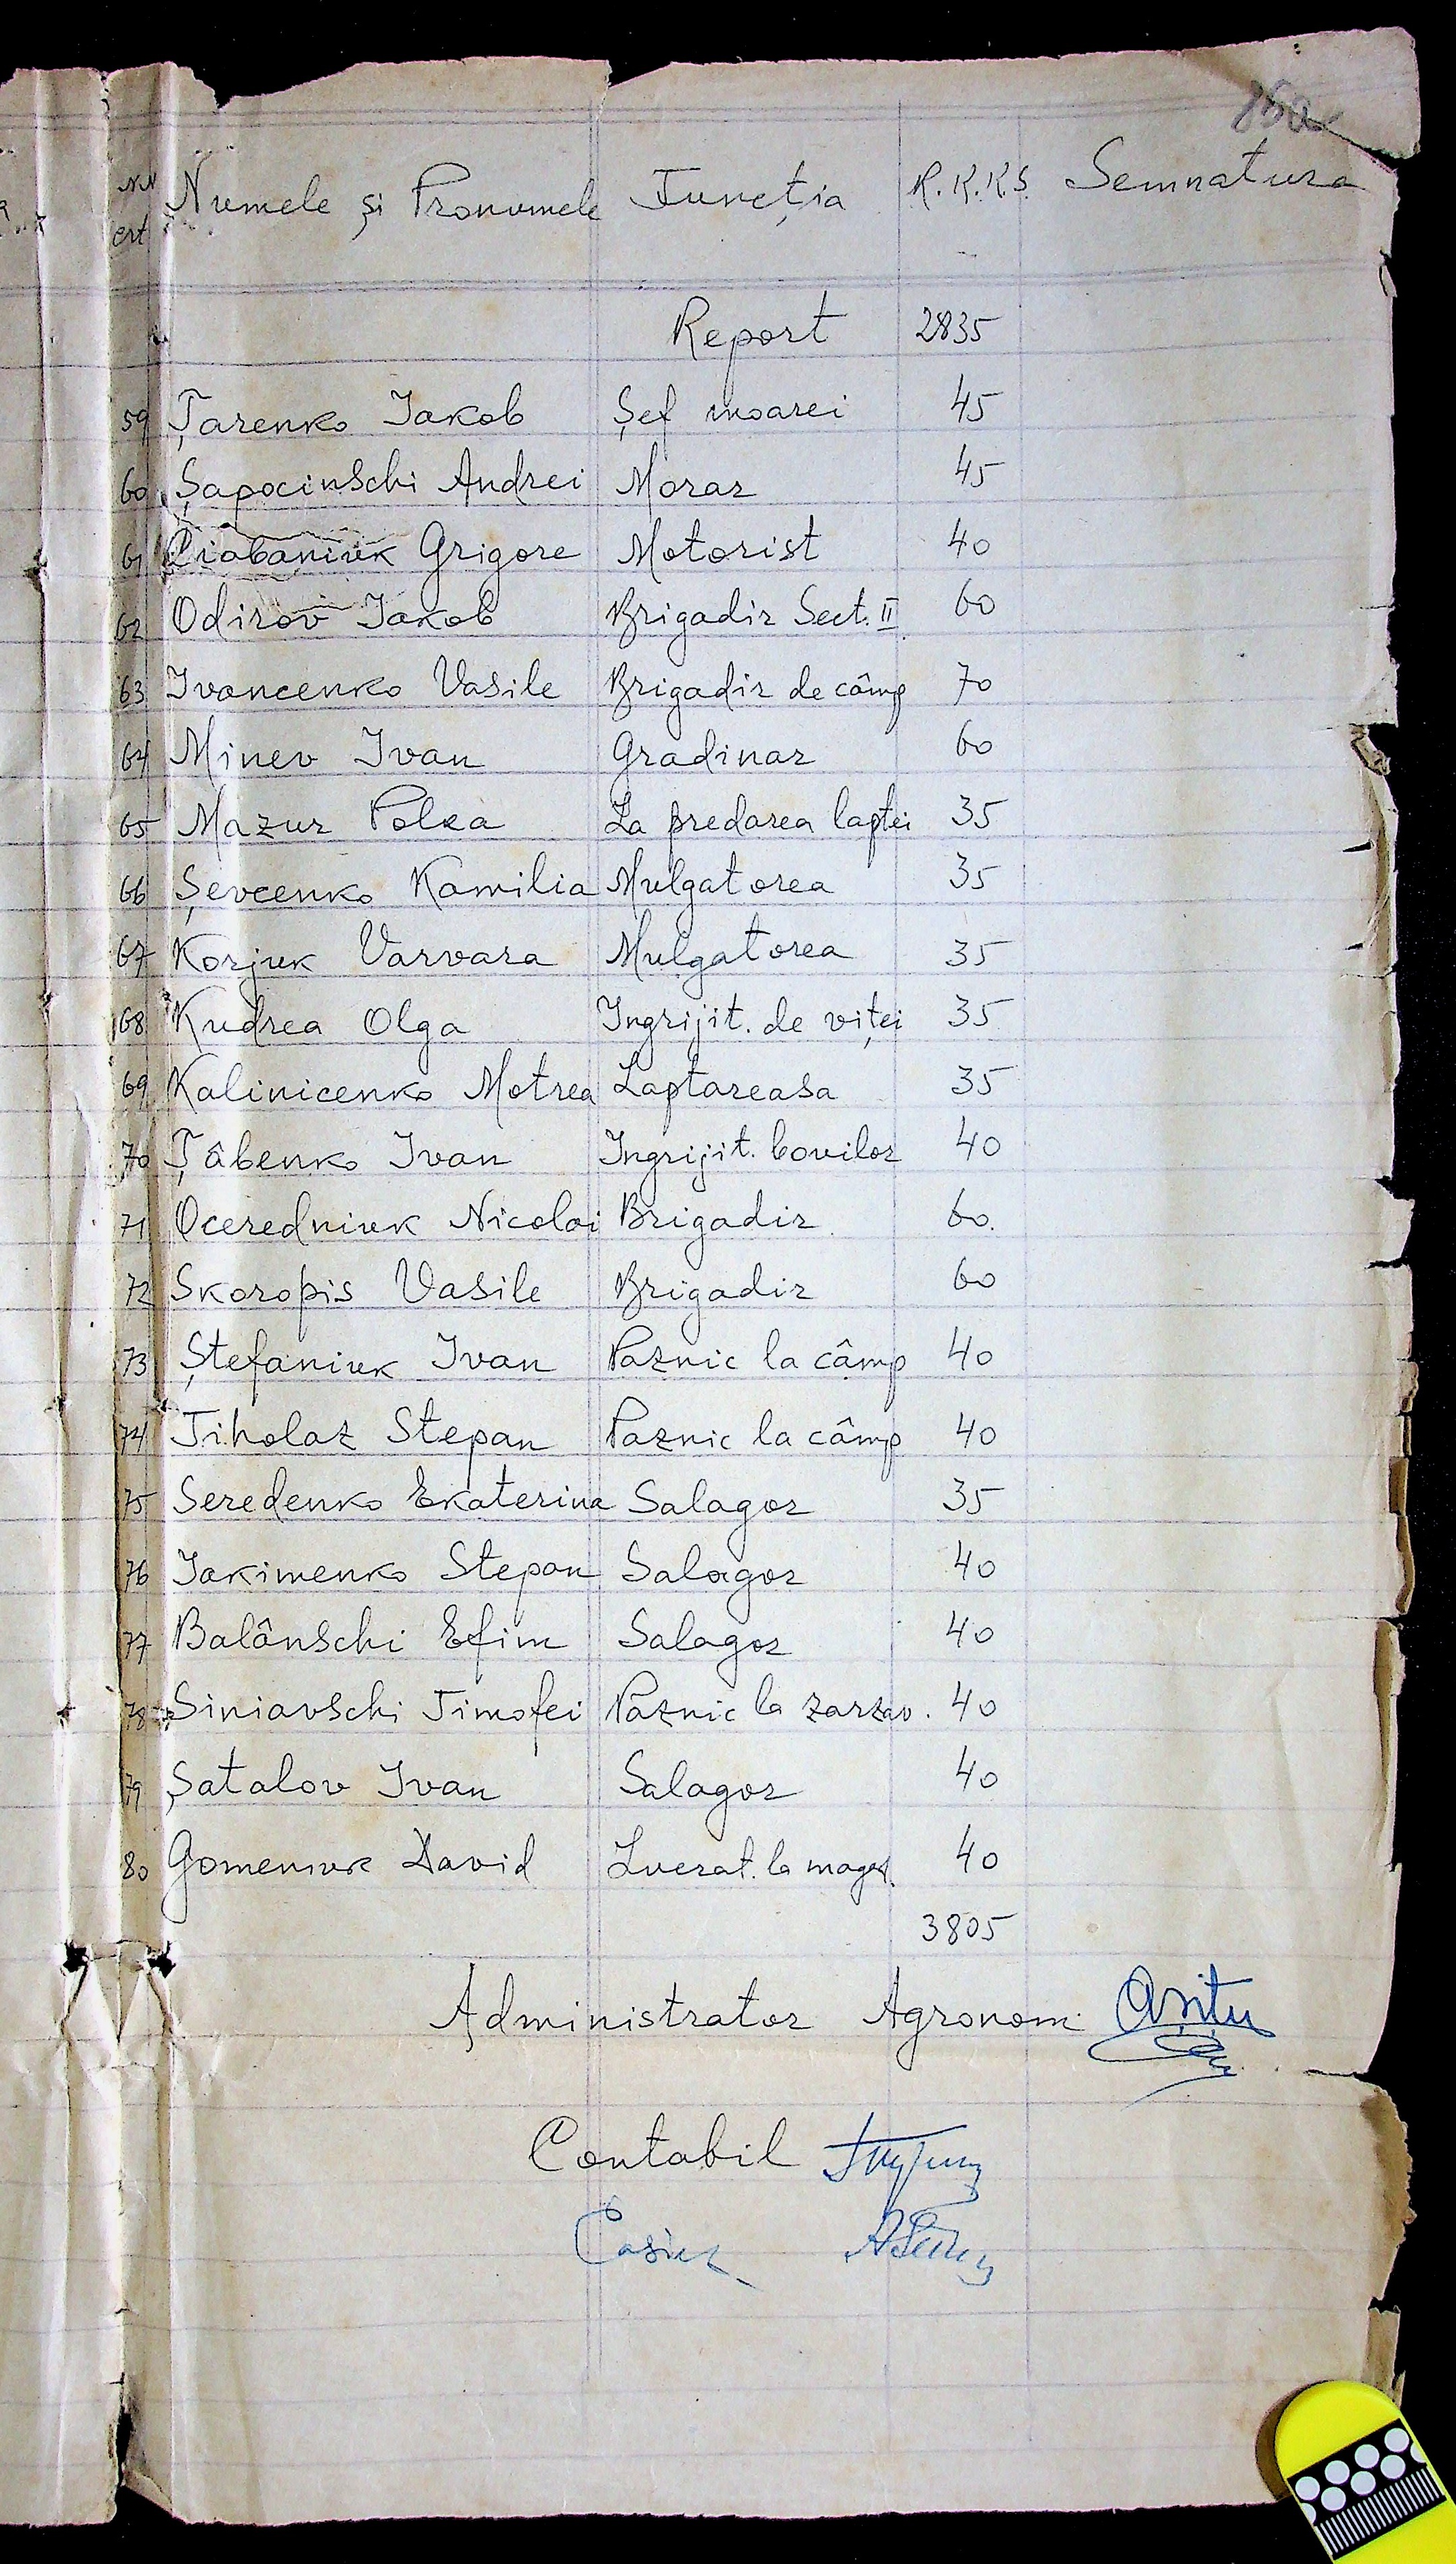 850
NN Numele și Pronumele Funcția R.K.K.S. Semnatura
crt
Report 2835
59 Țarenko Iakob Șef moarei 45
60 Șapocinschi Andrei Morar 45
61 Ciobaniuk Grigore Motorist 40
62 Odirov Iakob Brigadir Sect. II 60
63 Ivancenko Vasile Brigadir de câmp 70
64 Minev Ivan Gradinar 60
65 Mazur Polea La predarea laptei 35
66 Șevcenko Kamilia Mulgatorea 35
67 Korjuk Varvara Mulgatorea 35
68 Kudrea Olga Ingrijit. de viței 35
69 Kalinicenko Motrea Laptareasa 35
70 Țâbenko Ivan Ingrijit. bovilor 40
71 Oceredniuk Nicolai Brigadir 60.
72 Skoropis Vasile Brigadir 60
73 Ștefaniuk Ivan Paznic la câmp 40
74 Tiholaz Stepan Paznic la câmp 40
75 Seredenko Ekaterina Salagor 35
76 Iakimenko Stepan Salagor 40
77 Balânschi Efim Salagor 40
78 Siniavschi Timofei Paznic la zarzav. 40
79 Șatalov Ivan Salagor 40
80 Gomeniuk David Lucrat. la magaz. 40
3805
Administrator Agronom
Contabil
Casier